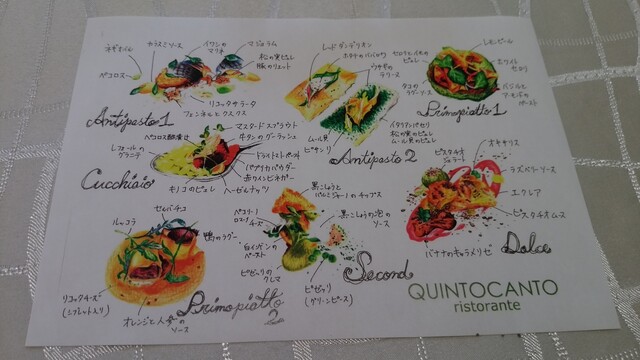 ネギオイル
カラスミソース
イワシの
マリネ
マジョラム
松の実ピュレ
豚のリエット
ペコロス
リコッタサラータ
フェンネルとクスクス
Antipasto 1
レッドダンデリオン
ホタテのババロワ
ウサギの
テリーヌ
ムール貝
ピサンリ
イタリアンパセリ
松の実のピュレ
ムール貝のピュレ
Antipasto 2
セロリとイカの
ピュレ
タコの
ラグーソース
レモンピール
ホワイト
セロリ
バジルと
アーモンドの
ペースト
Primopiatto 1
レフォールの
グラニテ
ペコロス酢漬け
マスタードスプラウト
牛タンのグーラッシュ
ドライトマトペースト
パプリカパウダー
赤ワインビネガー
ヘーゼルナッツ
キノコのピュレ
Cucchiaio
ルッコラ
セルバチコ
鴨のラグー
リコッタチーズ
オレンジと人参の
ソース
Primopiatto
2
黒こしょうと
パルミジャーノのチップス
ペコリーノ
ロマーノ
チーズ
黒こしょうの泡の
ソース
白インゲンの
ペースト
ピゼッリの
クレマ
ピゼッリ
(グリーンピース)
Second
ピスタチオ
ジェラート
オキサリス
ラズベリーソース
エクレア
ピスタチオムース
バナナのキャラメリゼ
Dolce
QUINTOCANTO
ristorante